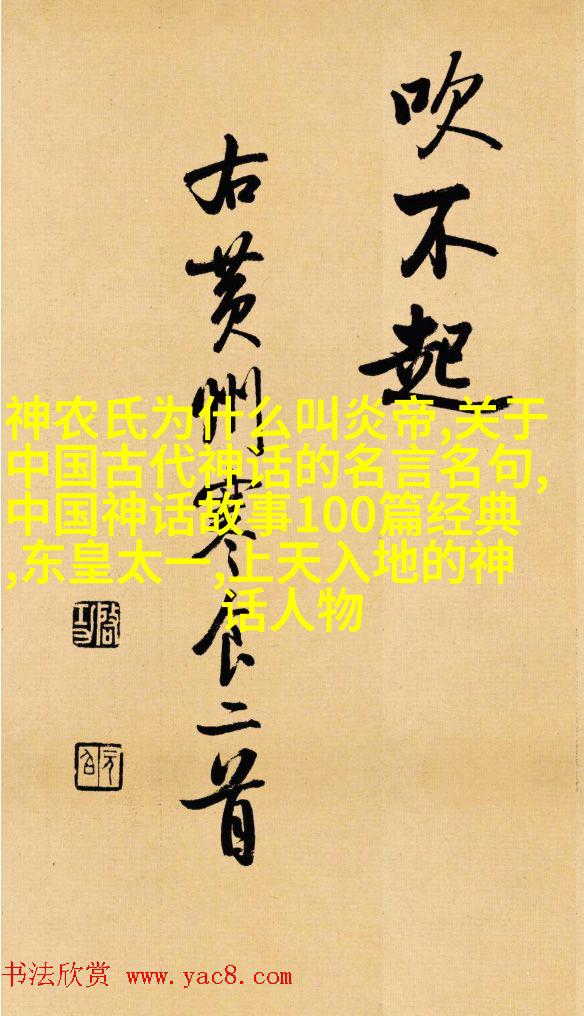 吹不起
右黄州寒食二首
啓功
元白
神农氏为什么叫炎帝,关于
中国古代神话的名言名句,
中国神话故事100篇经典
,东皇太一,上天入地的神
话人物
书法欣赏 www.yac8.com